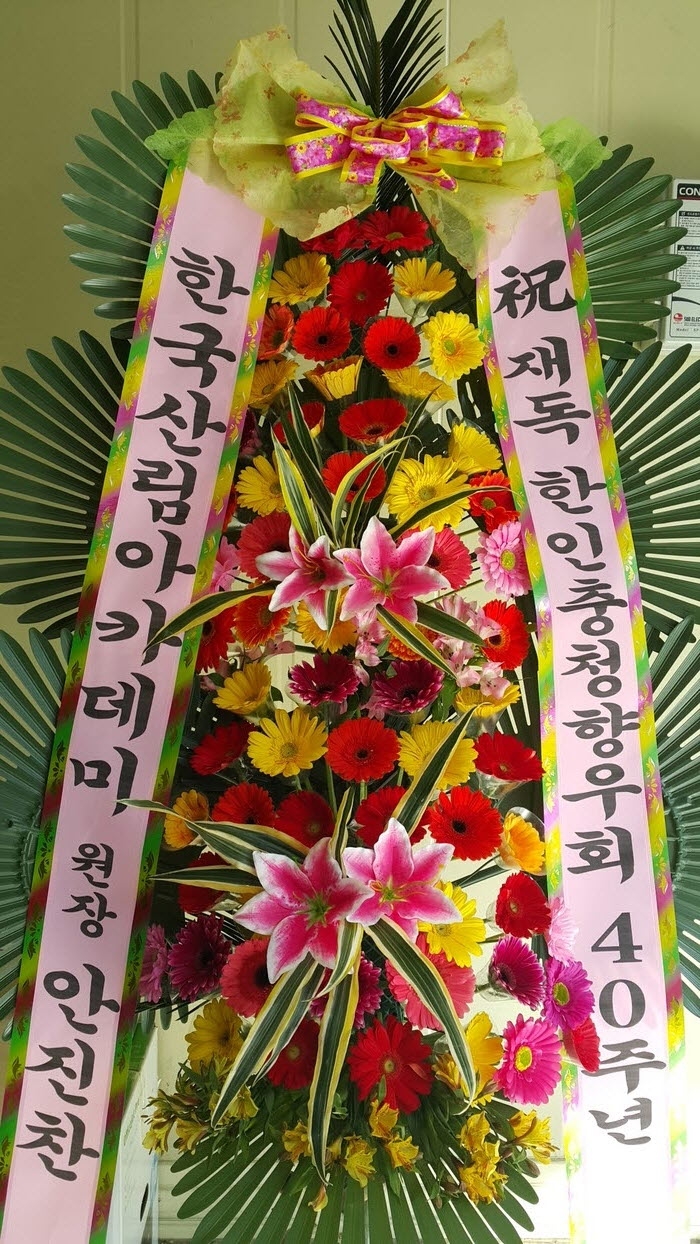 祝 재독 한인충청향우회 40주년
한국산림아카데미 원장 안진찬
CON